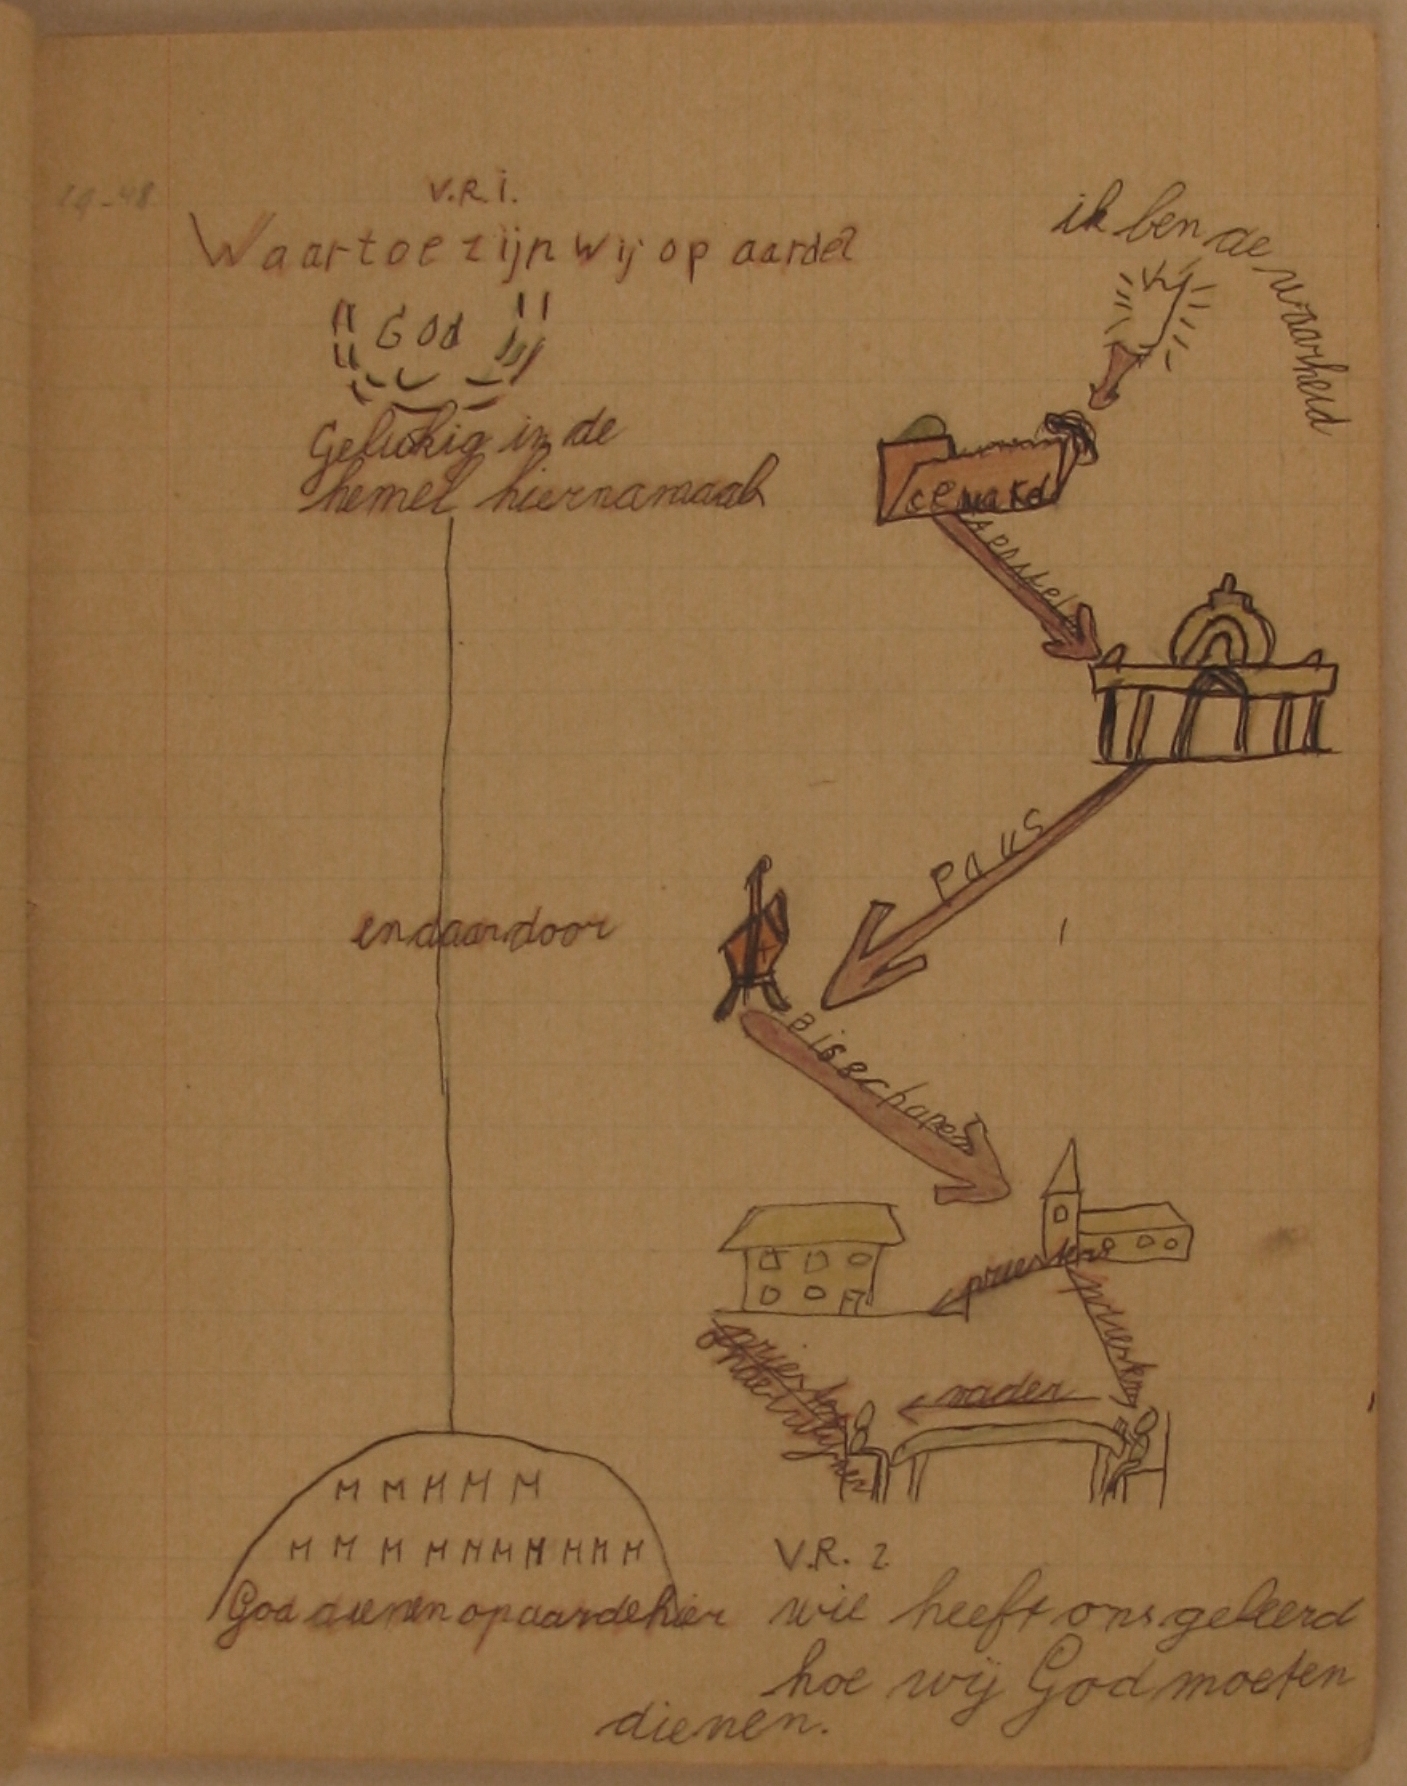 V.R.1.
Waartoe zijn wij op aarde?
God
Gelukig in de
hemel hiernamaals
endaardoor
M M M M M
M M M M M M M M M M
God dienen op aarde hier
ik ben de waarheid
cenakel
Apostels
Paus
Bisschapen
priesters
priesters
priester
vader
V.R. 2
wie heeft ons geleerd
hoe wij God moeten
dienen.